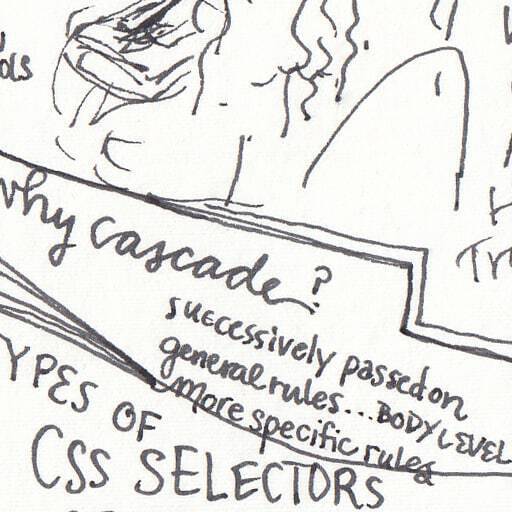 why cascade?
successively passed on
general rules...BODY LEVEL
more specific rules
TYPES OF
CSS SELECTORS